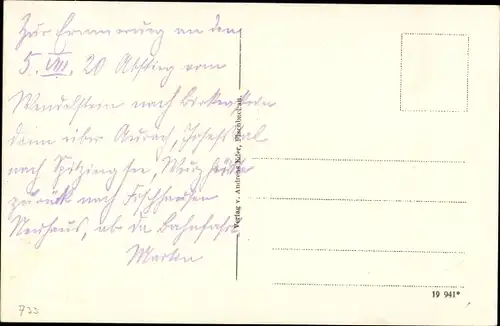 Zur Erinnerung an den
5. VIII. 20 Abstieg vom
Wendelstein nach Birkenstein
dann über Aurach, Josefstal
nach Spitzingsee, Wurzhütte
zurück nach Fischhausen
Neuhaus, ab da Bahnfahrt
Martin
Verlag v. Andreas Adler, Fischbachau.
19 941*
733